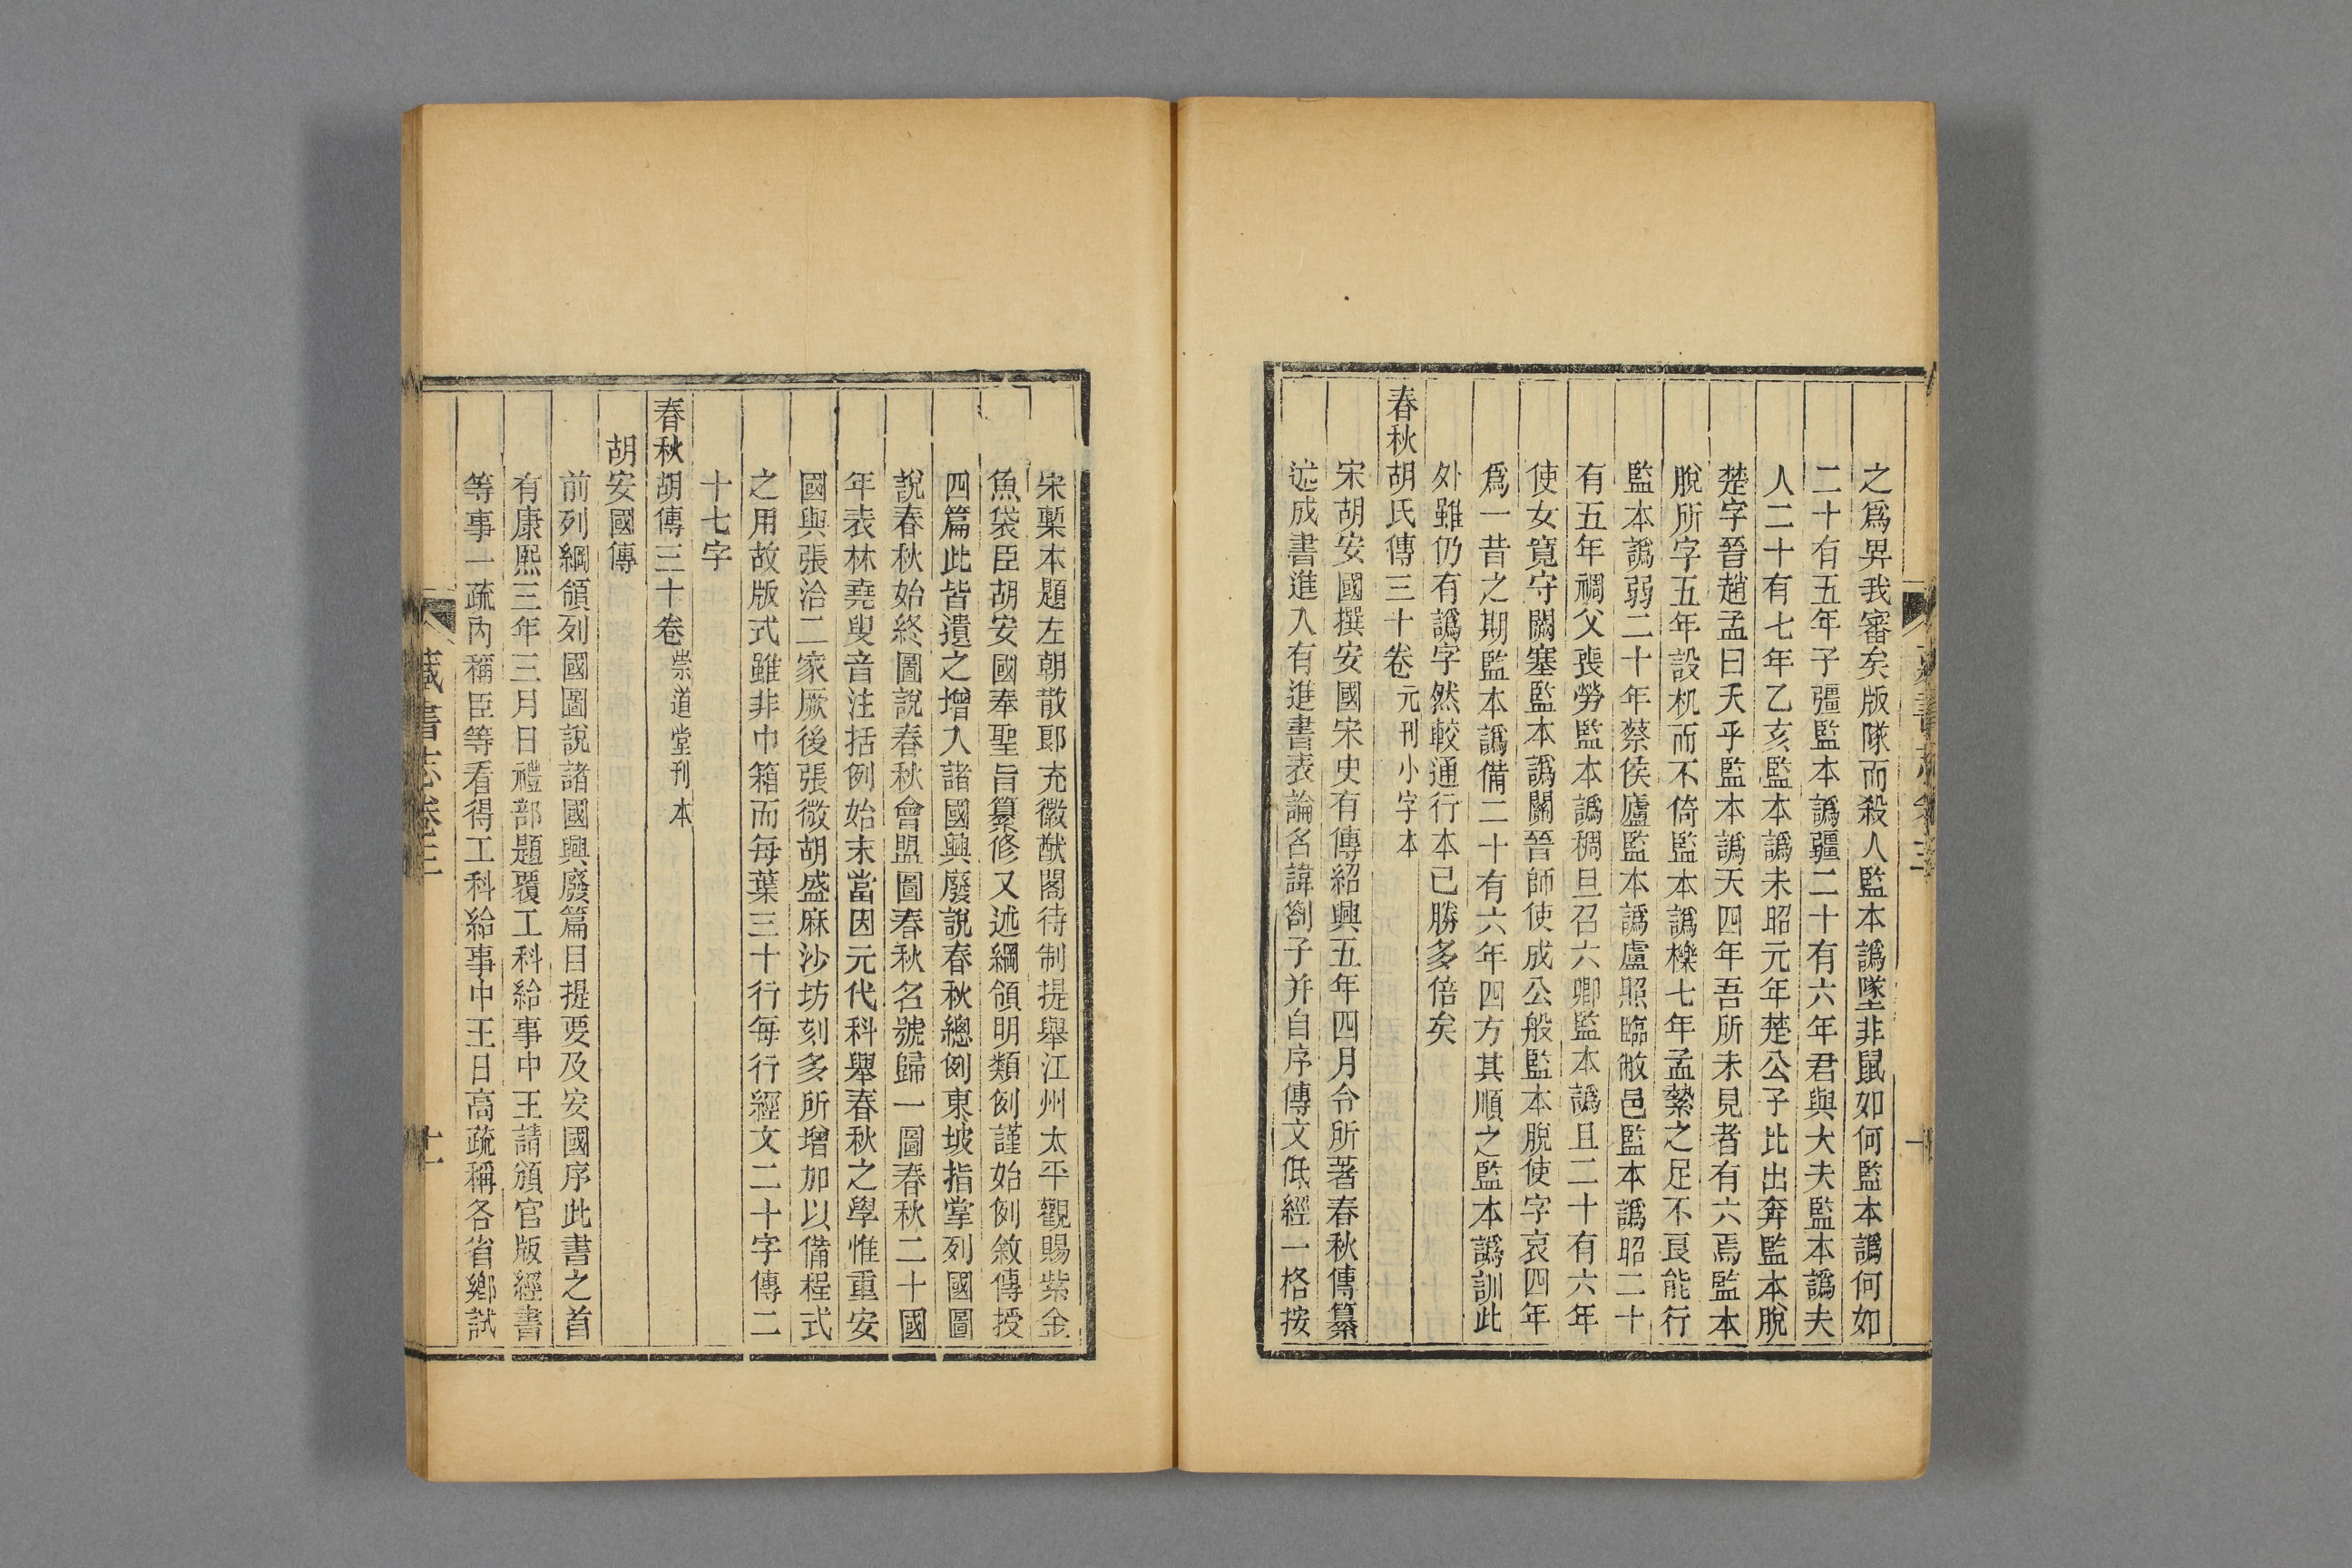 之爲畀我審矣版隊而殺人監本譌墜非鼠如何監本譌何如
二十有五年子彊監本譌疆二十有六年君與大夫監本譌夫
人二十有七年乙亥監本譌未昭元年楚公子比出奔監本脫
楚字晉趙孟曰天乎監本譌天四年吾所未見者有六焉監本
脫所字五年設机而不倚監本譌櫟七年孟縶之足不良能行
監本譌弱二十年蔡侯廬監本譌盧照臨敝邑監本譌昭二十
有五年禂父喪勞監本譌稠且召六卿監本譌且二十有六年
使女寬守闕塞監本譌關晉師使成公般監本脫使字哀四年
爲一昔之期監本譌備二十有六年四方其順之監本譌訓此
外雖仍有譌字然較通行本已勝多倍矣
春秋胡氏傳三十卷元刊小字本
宋胡安國撰安國宋史有傳紹興五年四月令所著春秋傳纂
述成書進入有進書表論名諱劄子并自序傳文低經一格按
宋槧本題左朝散郎充徽猷閣待制提舉江州太平觀賜紫金
魚袋臣胡安國奉聖旨纂修又述綱領明類例謹始例敘傳授
四篇此皆遺之增入諸國興廢說春秋總例東坡指掌列國圖
說春秋始終圖說春秋會盟圖春秋名號歸一圖春秋二十國
年表林堯叟音注括例始末當因元代科舉春秋之學惟重安
國與張洽二家厥後張微胡盛麻沙坊刻多所增加以備程式
之用故版式雖非巾箱而每葉三十行每行經文二十字傳二
十七字
春秋胡傳三十卷崇道堂刊本
胡安國傳
前列綱領列國圖說諸國興廢篇目提要及安國序此書之首
有康熙三年三月日禮部題覆工科給事中王請頒官版經書
等事一疏內稱臣等看得工科給事中王日高疏稱各省鄉試
藏書志卷三
十一